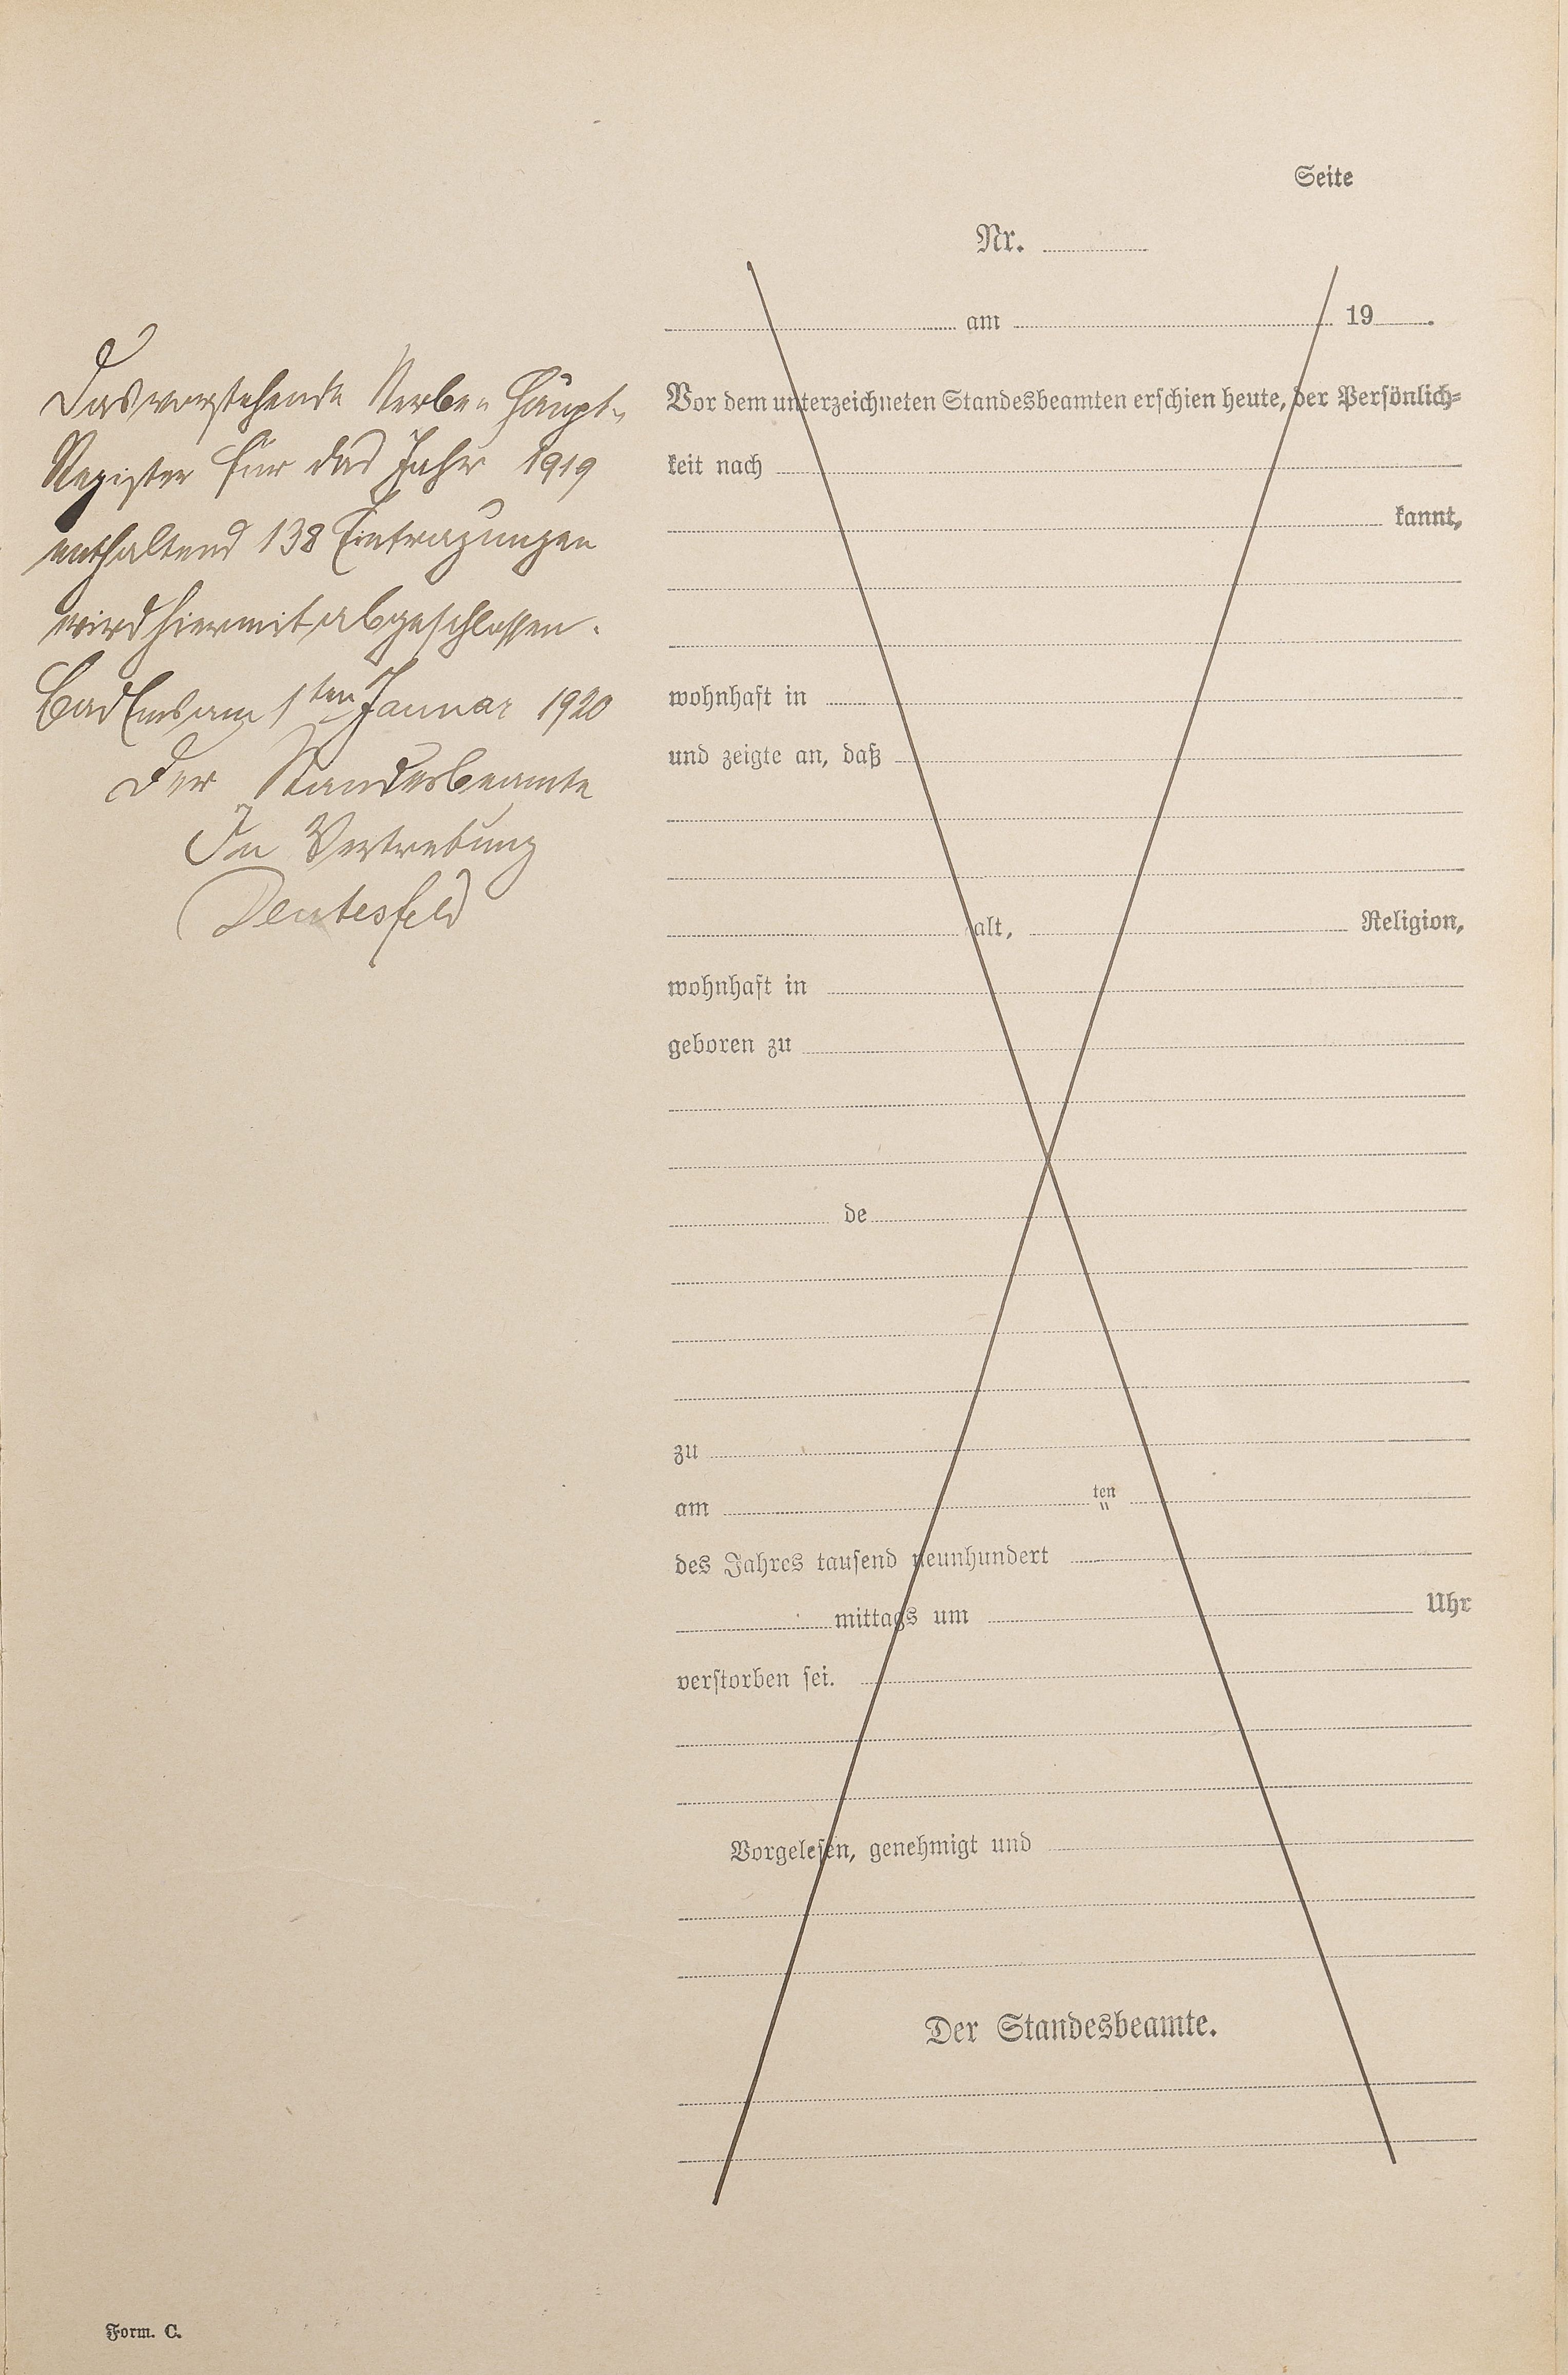 Seite
Nr.
am 19 .
Das vorstehende Sterbe-Haupt-
Register für das Jahr 1919
enthaltend 138 Eintragungen
wird hiermit abgeschlossen.
Bad Ems am 1ten Januar 1920
Der Standesbeamte
In Vertretung
Deutesfeld
Vor dem unterzeichneten Standesbeamten erschien heute, der Persönlich-
keit nach
kannt,
wohnhaft in
und zeigte an, daß
alt, Religion,
wohnhaft in
geboren zu
de
zu
am ten
des Jahres tausend neunhundert
mittags um Uhr
verstorben sei.
Vorgelesen, genehmigt und
Der Standesbeamte.
Form. C.